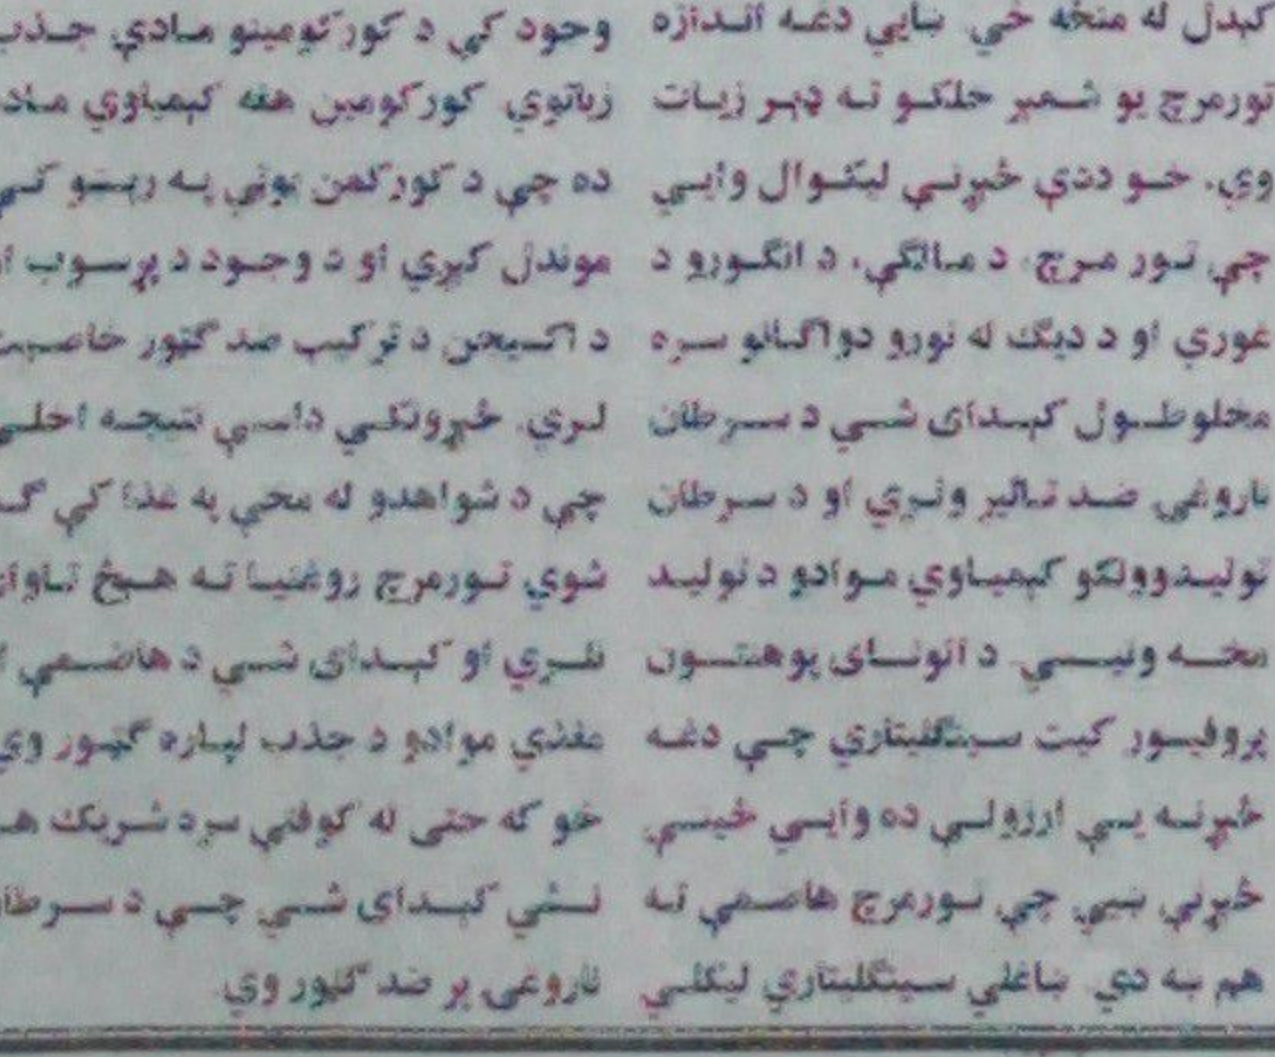 کېدل له منځه ځي. ښايي دغه اندازه
تورمرچ يو شمېر خلکو ته ډېر زيات
وي. خو ددې څېړنې ليکوال وايي
چې تور مرچ، د مالګې، د انګورو د
غوړي او د ديګ له نورو دواګانو سره
مخلوطول کېدای شي د سرطان
ناروغۍ ضد تاثير ولري او د سرطان
توليدوونکو کېمياوي موادو د توليد
مخه ونيسي. د
پروفيسور کيت سينګليتاري چې دغه
څېړنه يې ارزولې ده وايي ځينې
څېړنې ښيي چې تورمرچ هاضمې ته
هم ښه دي. ښاغلي سينګليتاري ليکلي
وجود کې د کورکومينو مادې جذب
زياتوي. کورکومين هغه کېمياوي
ده چې د کورکمن بوټي په ريښو کې
موندل کېږي او د وجود د پړسوب
د اکسيجن د ترکيب ضد ګټور
لري. څېړونکي داسې نتيجه اخلي
چې د شواهدو له مخې په غذا کې
شوي تورمرچ روغتيا ته هېڅ
نلري او کېدای شي د هاضمې
مغذي موادو د جذب لپاره ګټور وي
خو که حتی له کوفتې سره شريک
نشي کېدای شي چې د
ناروغۍ پر ضد ګټور وي.